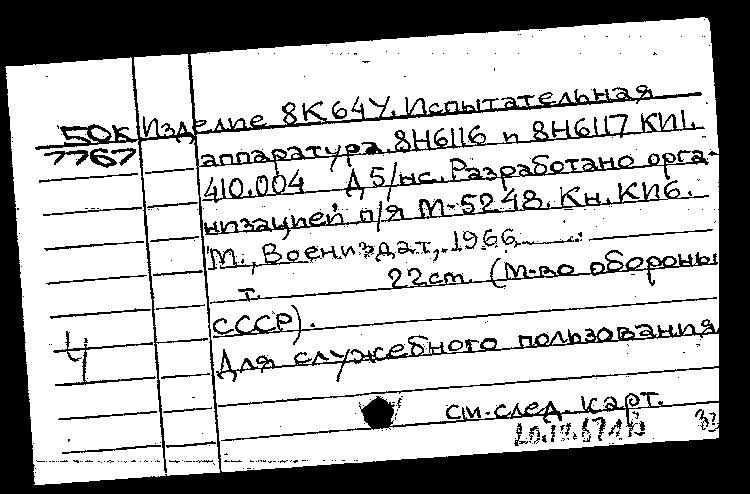 50К Изделие 8К64У. Испытательная
7767 аппаратура. 8Н6116 и 8Н6117 КИ1.
410.004 Д5/нс. Разработано орга-
низацией п/я М-5248. Кн. КИ6.
М., Воениздат, 1966
т. 22ст. (М-во обороны
СССР).
Ч Для служебного пользования
см. след. карт.